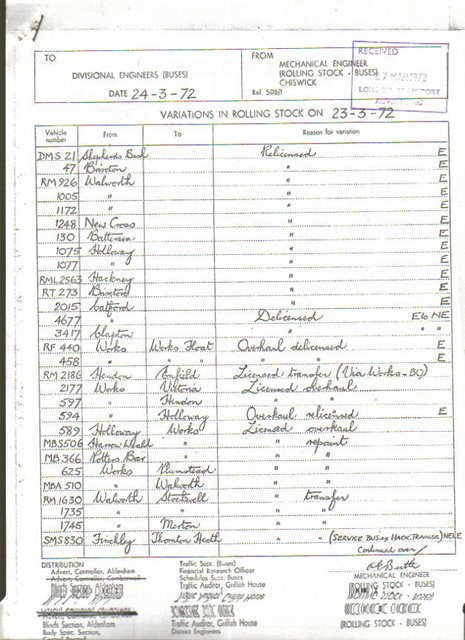 TO
DIVISIONAL ENGINEERS (BUSES)
DATE 24-3-72
FROM
MECHANICAL ENGINEER
(ROLLING STOCK - BUSES)
CHISWICK
Ref. 508/1
RECEIVED
27 MAR 1972
LONDON TRANSPORT
ADVERTISING
VARIATIONS IN ROLLING STOCK ON 23-3-72
Vehicle number From To Reason for variation
DMS 21 Shepherds Bush Relicensed E
47 Brixton " E
RM 926 Walworth " E
1005 " " E
1172 " " E
1248 New Cross " E
130 Battersea " E
1075 Holloway " E
1077 " " E
RML 2563 Hackney " E
RT 273 Brixton " E
2015 Catford " E
4677 " Delicensed E to NE
3417 Clapton " " "
RF 440 Works Works Float Overhaul delicensed E
458 " " " " " E
RM 2186 Hendon Enfield Licensed transfer (Via Works - BQ)
2177 Works Victoria Licensed overhaul
597 " Hendon " "
594 " Holloway Overhaul relicensed E
589 Holloway Works Licensed overhaul
MBS 506 Harrow Weald " " repaint
MB 366 Potters Bar " " "
625 Works Plumstead " "
MBA 510 " Walworth " "
RM 1630 Walworth Stockwell " transfer
1735 " " " "
1745 " Merton " "
SMS 830 Finchley Thornton Heath " " (SERVICE BUS ex HACK TRANSA)
Continued over/
DISTRIBUTION
Advert. Controller, Aldenham
Blinds Section, Aldenham
Body Spec. Section,
Traffic Supt. (Buses)
Financial Research Officer
Schedules Supt. Buses
Traffic Auditor, Griffith House
Traffic Auditor, Griffith House
District Engineers
MECHANICAL ENGINEER
(ROLLING STOCK - BUSES)